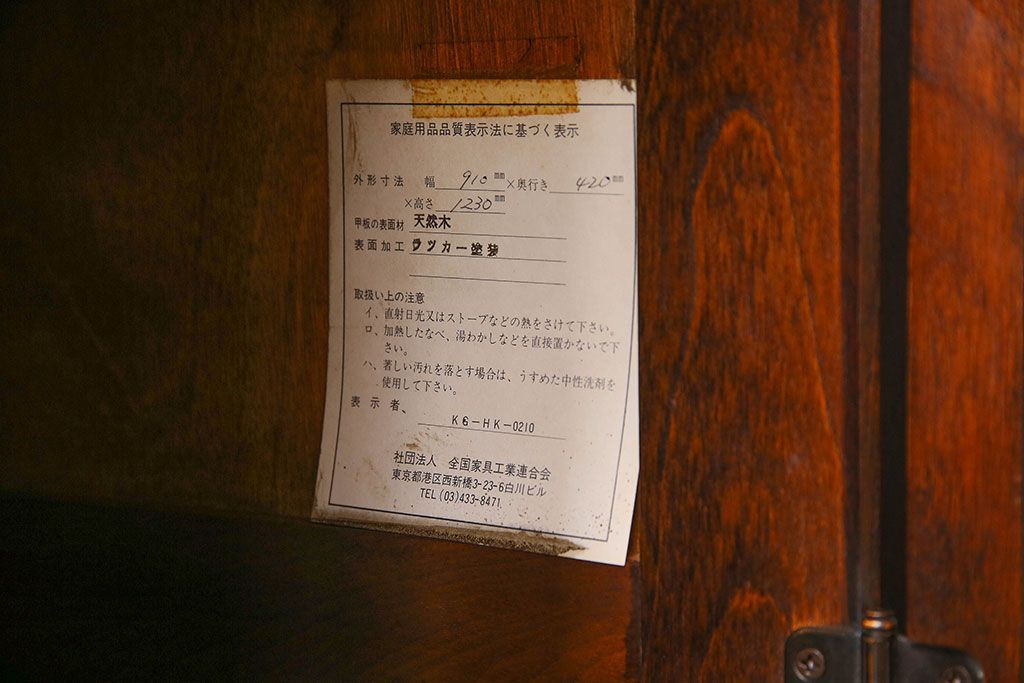 家庭用品品質表示法に基づく表示
外形寸法 幅 910㎜×奥行き 420㎜
×高さ 1230㎜
甲板の表面材 天然木
表面加工 ラツカー塗装
取扱い上の注意
イ、直射日光又はストーブなどの熱をさけて下さい。
ロ、加熱したなべ、湯わかしなどを直接置かないで下
さい。
ハ、著しい汚れを落とす場合は、うすめた中性洗剤を
使用して下さい。
表示者、
K6－HK－0210
社団法人 全国家具工業連合会
東京都港区西新橋3-23-6白川ビル
TEL (03)433-8471